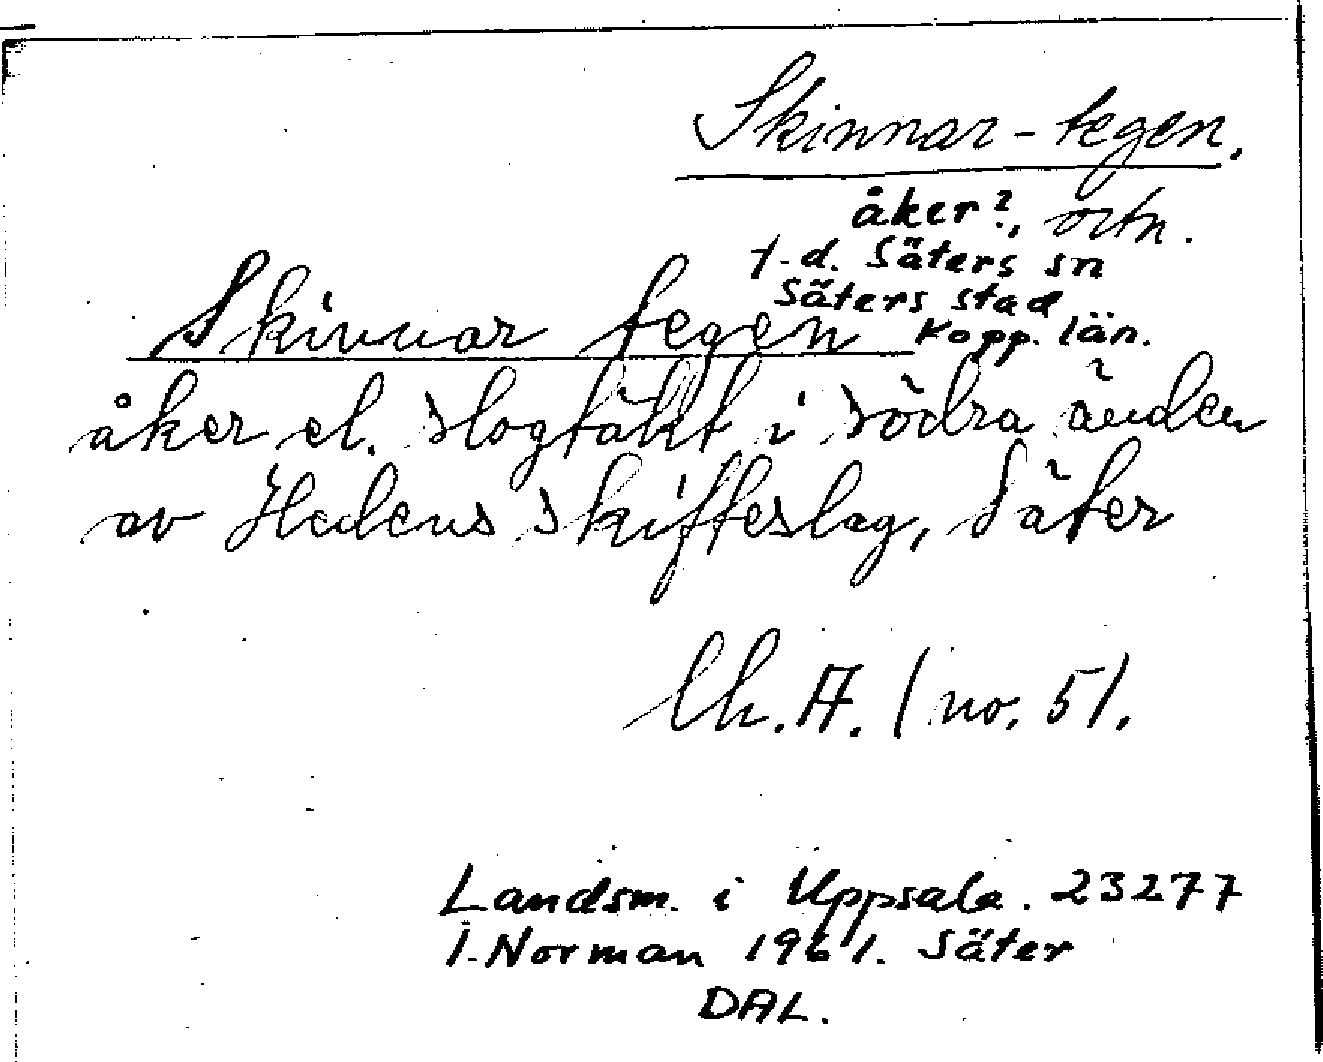 Skinnar-tegen.
åker?, ortn.
f.d. Säters sn
Säters stad
Kopp. län.
Skinnar tegen
åker el. slogtäkt i södra änden
av Hedens skifteslag, Säter
Ch. A. (no. 5).
Landsm. i Uppsala. 23277
I. Norman 1961. Säter
DAL.